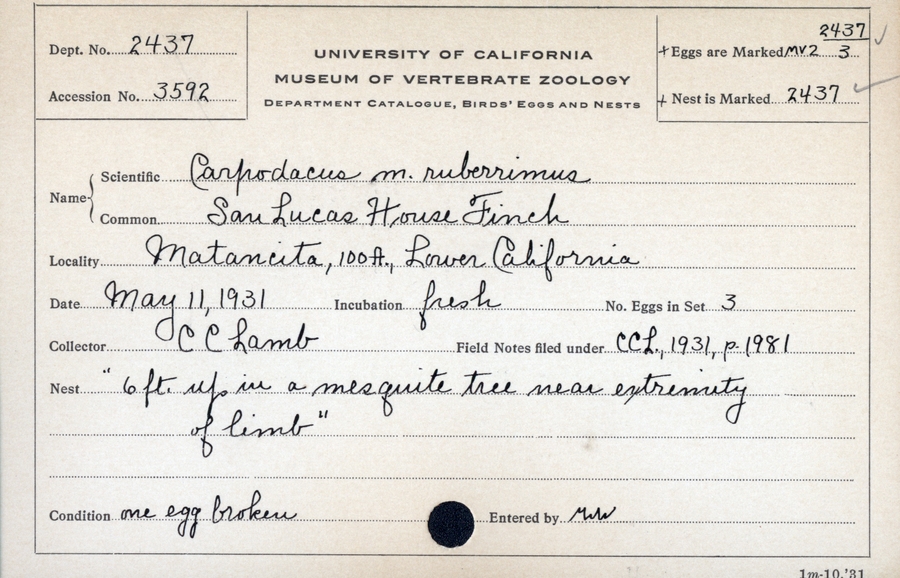 Dept. No. 2437
Accession No. 3592
UNIVERSITY OF CALIFORNIA
MUSEUM OF VERTEBRATE ZOOLOGY
DEPARTMENT CATALOGUE, BIRDS' EGGS AND NESTS
2437
+ Eggs are Marked MVZ 3
+ Nest is Marked 2437
Name
Scientific Carpodacus m. ruberrimus
Common San Lucas House Finch
Locality Matancita, 100 ft., Lower California
Date May 11, 1931 Incubation fresh No. Eggs in Set 3
Collector C C Lamb Field Notes filed under CCL., 1931, p. 1981
Nest "6 ft. up in a mesquite tree near extremity
of limb"
Condition one egg broken Entered by
1m-10,'31